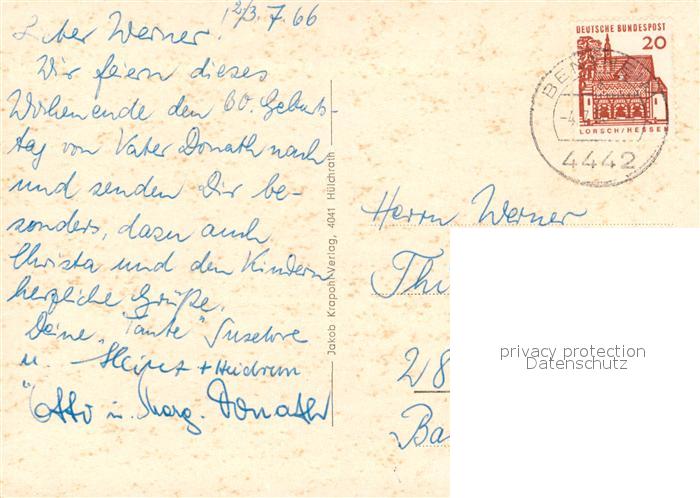 Lieber Werner! 2/3.7.66
Wir feiern dieses
Wochenende den 60. Geburts-
tag von Vater Donath nach
und senden Dir be-
sonders, dazu auch
Christa und den Kindern
herzliche Grüße.
Deine "Tante" Suselore
u. Heinz + Heidrun
Otto u. Marg. Donath
Jakob Krapohl-Verlag, 4041 Hülchrath
DEUTSCHE BUNDESPOST
20
LORSCH/HESSEN
BEN
-4.7
4442
Herrn Werner
Thi
28
Ba
privacy protection
Datenschutz